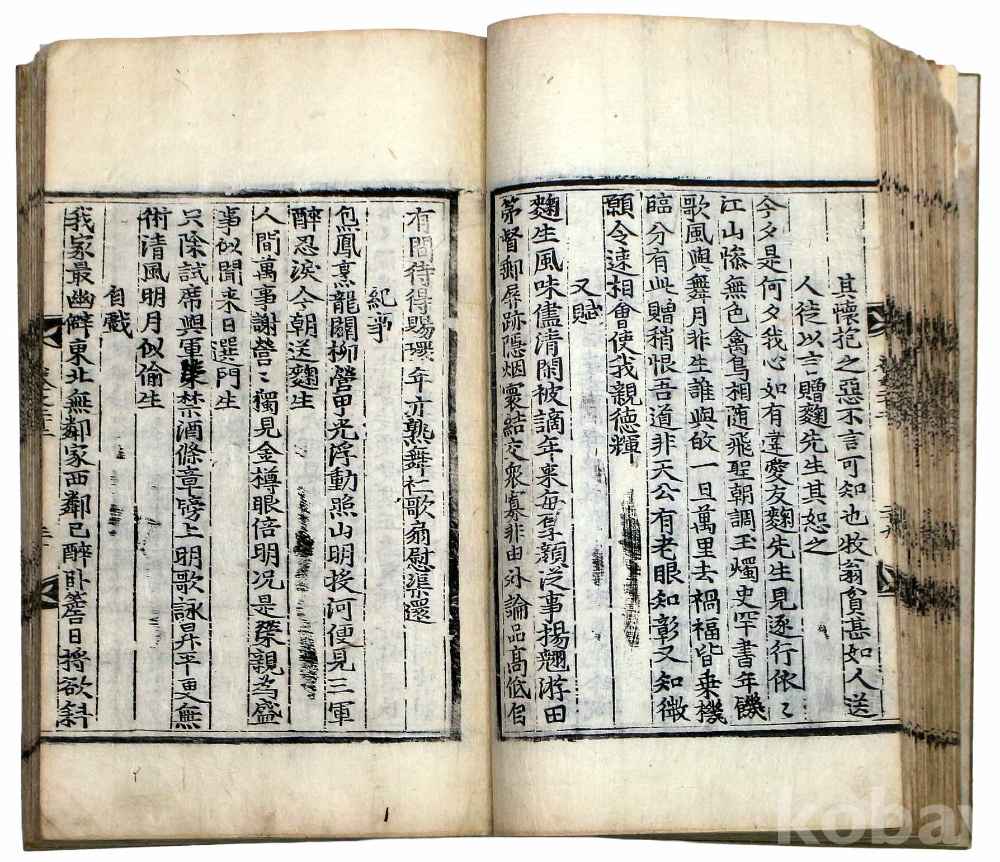 其懷抱之惡不言可知也牧翁貧甚如人送
人徒以言贈麴先生其恕之
今夕是何夕我心如有違愛友麴先生見逐行依〻
江山慘無色禽鳥相随飛聖朝調玉燭史罕書年饑
歌風與舞月非生誰與㰞一旦萬里去禍福皆乗機
臨分有此贈稍恨吾道非天公有老眼知彰又知微
願令速相會使我親德輝
又賦
麴生風味儘清閑被謫年来每厚顔泛事揚翹游田
第督郵屏跡隠烟寰結交衆寡非由外論品髙低㐰
有間待得賜環年亦熟舞衫歌扇慰渠還
紀事
炰鳳烹龍闢柳營甲光浮動照山明投河便見三軍
醉忍淚今朝送麴生
人間萬事謝營〻獨見金樽眼倍明况是榮親為盛
事似聞来日選門生
只除試席與軍榮禁酒條章牓上明歌詠昇平更無
術清風明月似偷生
自戲
我家最幽僻東北無鄰家西鄰已醉卧簷日將欲斜
kobay